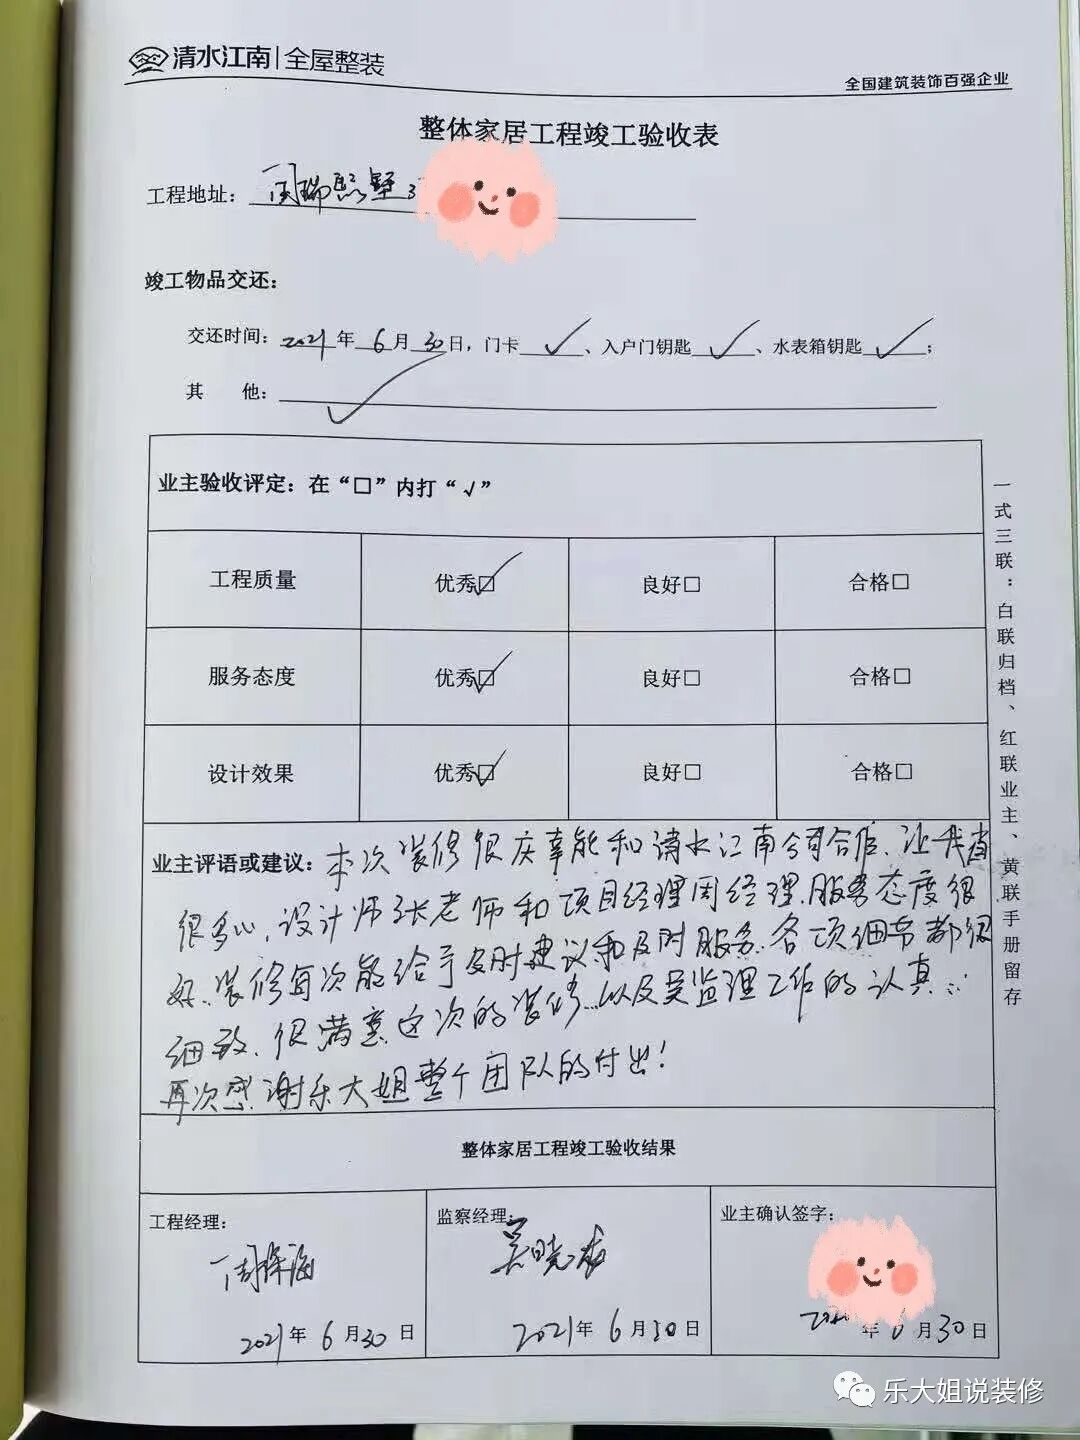 清水江南 | 全屋整装
全国建筑装饰百强企业
整体家居工程竣工验收表
工程地址：
竣工物品交还：
交还时间：2021年6月30日，门卡✓、入户门钥匙✓、水表箱钥匙✓；
其 他：✓
业主验收评定：在“□”内打“√”
工程质量 优秀☑ 良好□ 合格□
服务态度 优秀☑ 良好□ 合格□
设计效果 优秀☑ 良好□ 合格□
业主评语或建议：本次装修很庆幸能和清水江南公司合作、让我省
很多心，设计师张老师和项目经理周经理、服务态度很
好、装修每次能给予及时建议和及时服务、各项细节都很
细致、很满意这次的装修、以及吴监理工作的认真……
再次感谢乐大姐整个团队的付出！
整体家居工程竣工验收结果
工程经理： 监察经理： 业主确认签字：
2021年6月30日 2021年6月30日 年6月30日
一式三联：白联归档、红联业主、黄联手册留存
乐大姐说装修